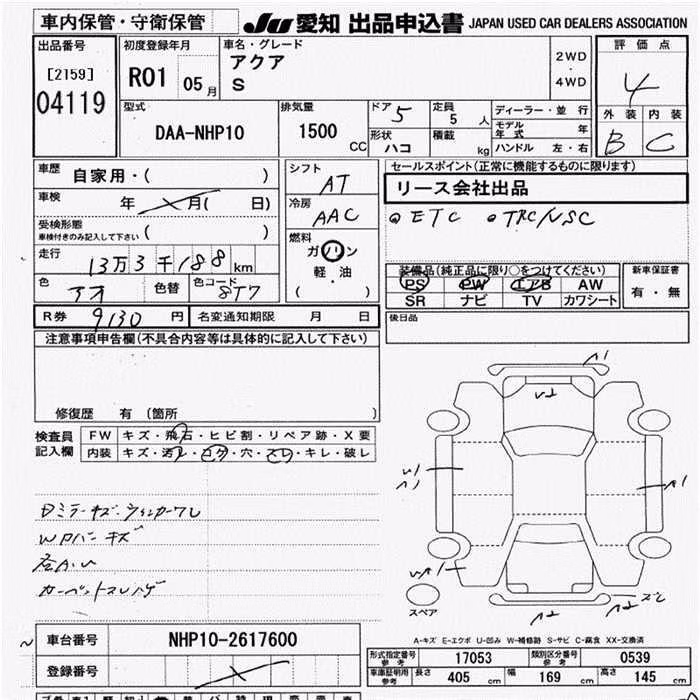 車内保管・守衛保管
JU 愛知 出品申込書 JAPAN USED CAR DEALERS ASSOCIATION
出品番号
[2159]
04119
初度登録年月
R01 05 月
車名・グレード
アクア
S
2WD
・
4WD
評価点
4
外装 内装
B C
型式
DAA-NHP10
排気量
1500
CC
ドア 5
形状 ハコ
定員
5 人
積載
kg
ディーラー・並行
モデル年式 年
ハンドル 左・右
車歴
自家用・( )
車検
年 月( 日)
受検形態
車検付きのみ記入して下さい ( )
走行
13万3千188 km
色
アオ
色替
色コード
8T7
シフト
AT
冷房
AAC
燃料
ガソリン
軽・油
( )
セールスポイント(正常に機能するものに限ります)
リース会社出品
ETC TRC/VSC
装備品(純正品に限り○をつけてください)
PS PW エアB AW
SR ナビ TV カワシート
新車保証書
有・無
R券 9130 円
名変通知期限 月 日
後日品
注意事項申告欄(不具合内容等は具体的に記入して下さい)
修復歴 有 (箇所 )
検査員
記入欄
FW キズ・飛石・ヒビ割・リペア跡・X要
内装 キズ・汚レ・コゲ・穴・スレ・キレ・破レ
WPバーキズ
A1
U2
A1
A1
A2
A2
スペア
A-キズ E-エクボ U-凹み W-補修跡 S-サビ C-腐食 XX-交換済
車台番号 NHP10-2617600
登録番号
形式指定番号
参考
17053
類別区分番号
参考
0539
車庫証明用
参考
長さ 405 cm
幅 169 cm
高さ 145 cm